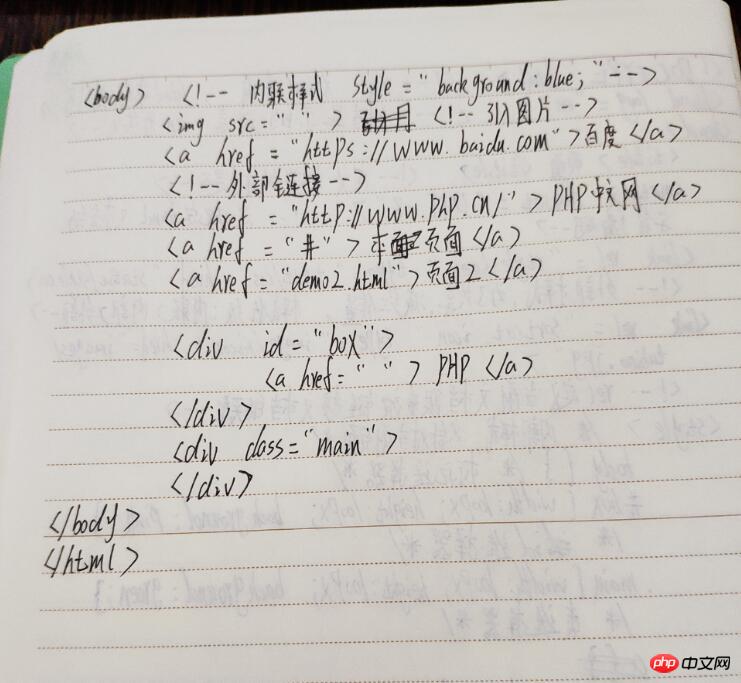 <body> <!-- 内联样式 style="background:blue;" -->
<img src=" "> <!-- 引入图片 -->
<a href="https://www.baidu.com">百度</a>
<!-- 外部链接 -->
<a href="http://www.php.cn/">PHP中文网</a>
<a href="#">本页面</a>
<a href="demo2.html">页面2</a>
<div id="box">
<a href=" ">PHP</a>
</div>
<div class="main">
</div>
</body>
</html>
php 中文网